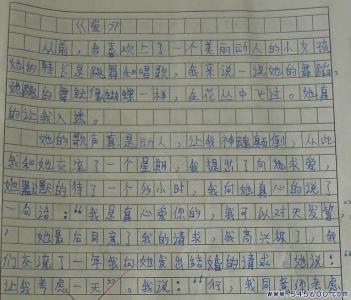 《爱》
从前,我喜欢上了一个美丽动人的小女孩
她的特长是跳舞和唱歌,我来说一说她的舞蹈。
她跳的舞就像蝴蝶一样,在花丛中飞过。她真
的让我入迷。
她的歌声真是动人,让我神魂颠倒,从此
我和她交流了一个星期,我提出了向她求爱,
她默默的待了一个多小时,我向她真心的说了
一句话:“我是真心爱你的,我可以对天发誓,
她最后同意了我的请求,我高兴极了,我
们交流了一年我向她发出结婚的请求。她说:“
让我考虑一天”。我说:“行,我同意你考虑
www.545600.com